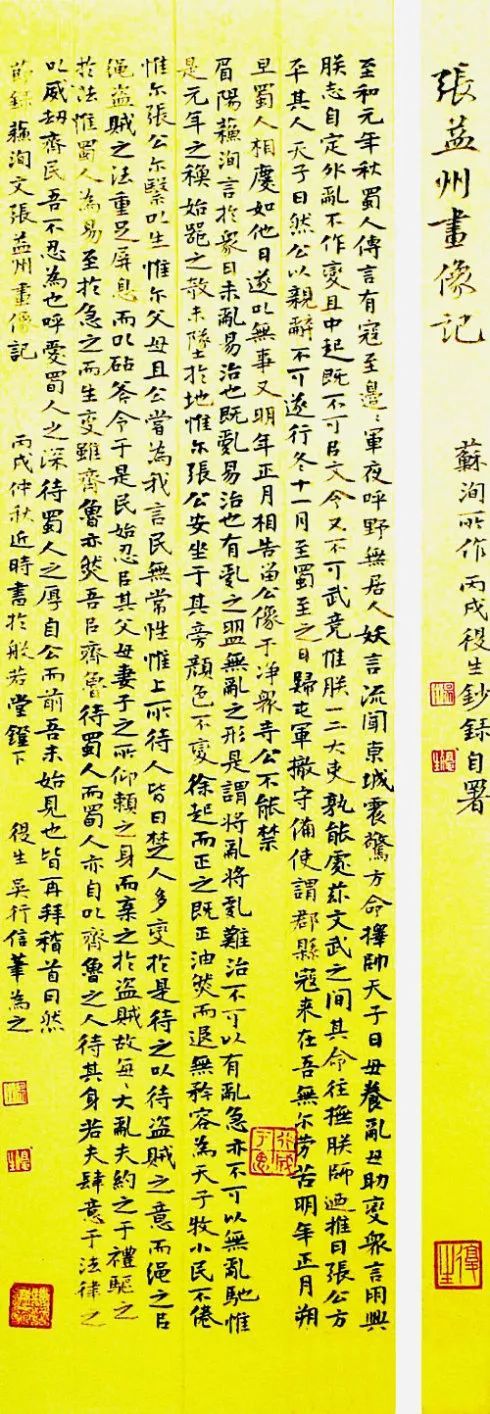 張益州畫像記
蘇洵所作 丙戌役生鈔録自署
至和元年秋蜀人傳言有寇至邊〻軍夜呼野無居人妖言流聞東城震驚方命擇帥天子曰毋養亂毋助變眾言朋興
朕志自定外亂不作變且中起既不可㠯文令又不可武竞惟朕一二大吏孰能處茲文武之間其命往撫朕師迺推曰張公方
平其人天子曰然公以親辭不可遂行冬十一月至蜀至之日歸屯軍撤守備使謂郡縣寇来在吾無尔劳苦明年正月朔
旦蜀人相慶如他日遂以無事又明年正月相告留公像于净眾寺公不能禁
眉陽蘇洵言於眾曰未亂易治也既亂易治也有亂之萌無亂之形是謂將亂將亂難治不可以有亂急亦不可以無亂馳惟
是元年之始之未墜於地惟尔張公安坐于其旁顏色不變徐起而正之既正油然而退無矜容為天子牧小民不倦
惟尔張公尔繄以生惟尔父母且公嘗為我言民無常性惟上所待人皆曰楚人多變於是待之以待盜賊之意而绳之㠯
绳盜賊之法重足屏息而以砧斧令于是民始忍㠯其父母妻子之所仰賴之身而棄之於盜賊故每〻大亂夫約之于禮驅之
於法惟蜀人為易至於急之而生變雖齊魯亦然吾㠯齊魯待蜀人而蜀人亦自以齊魯之人待其身若夫肆意于法律之
以威劫齊民吾不忍為也呼愛蜀人之深待蜀人之厚自公而前吾未始見也皆再拜稽首曰然
節録蘇洵文張益州畫像記 丙戌仲秋近時書於般若堂鐙下 役生吳行信筆為之